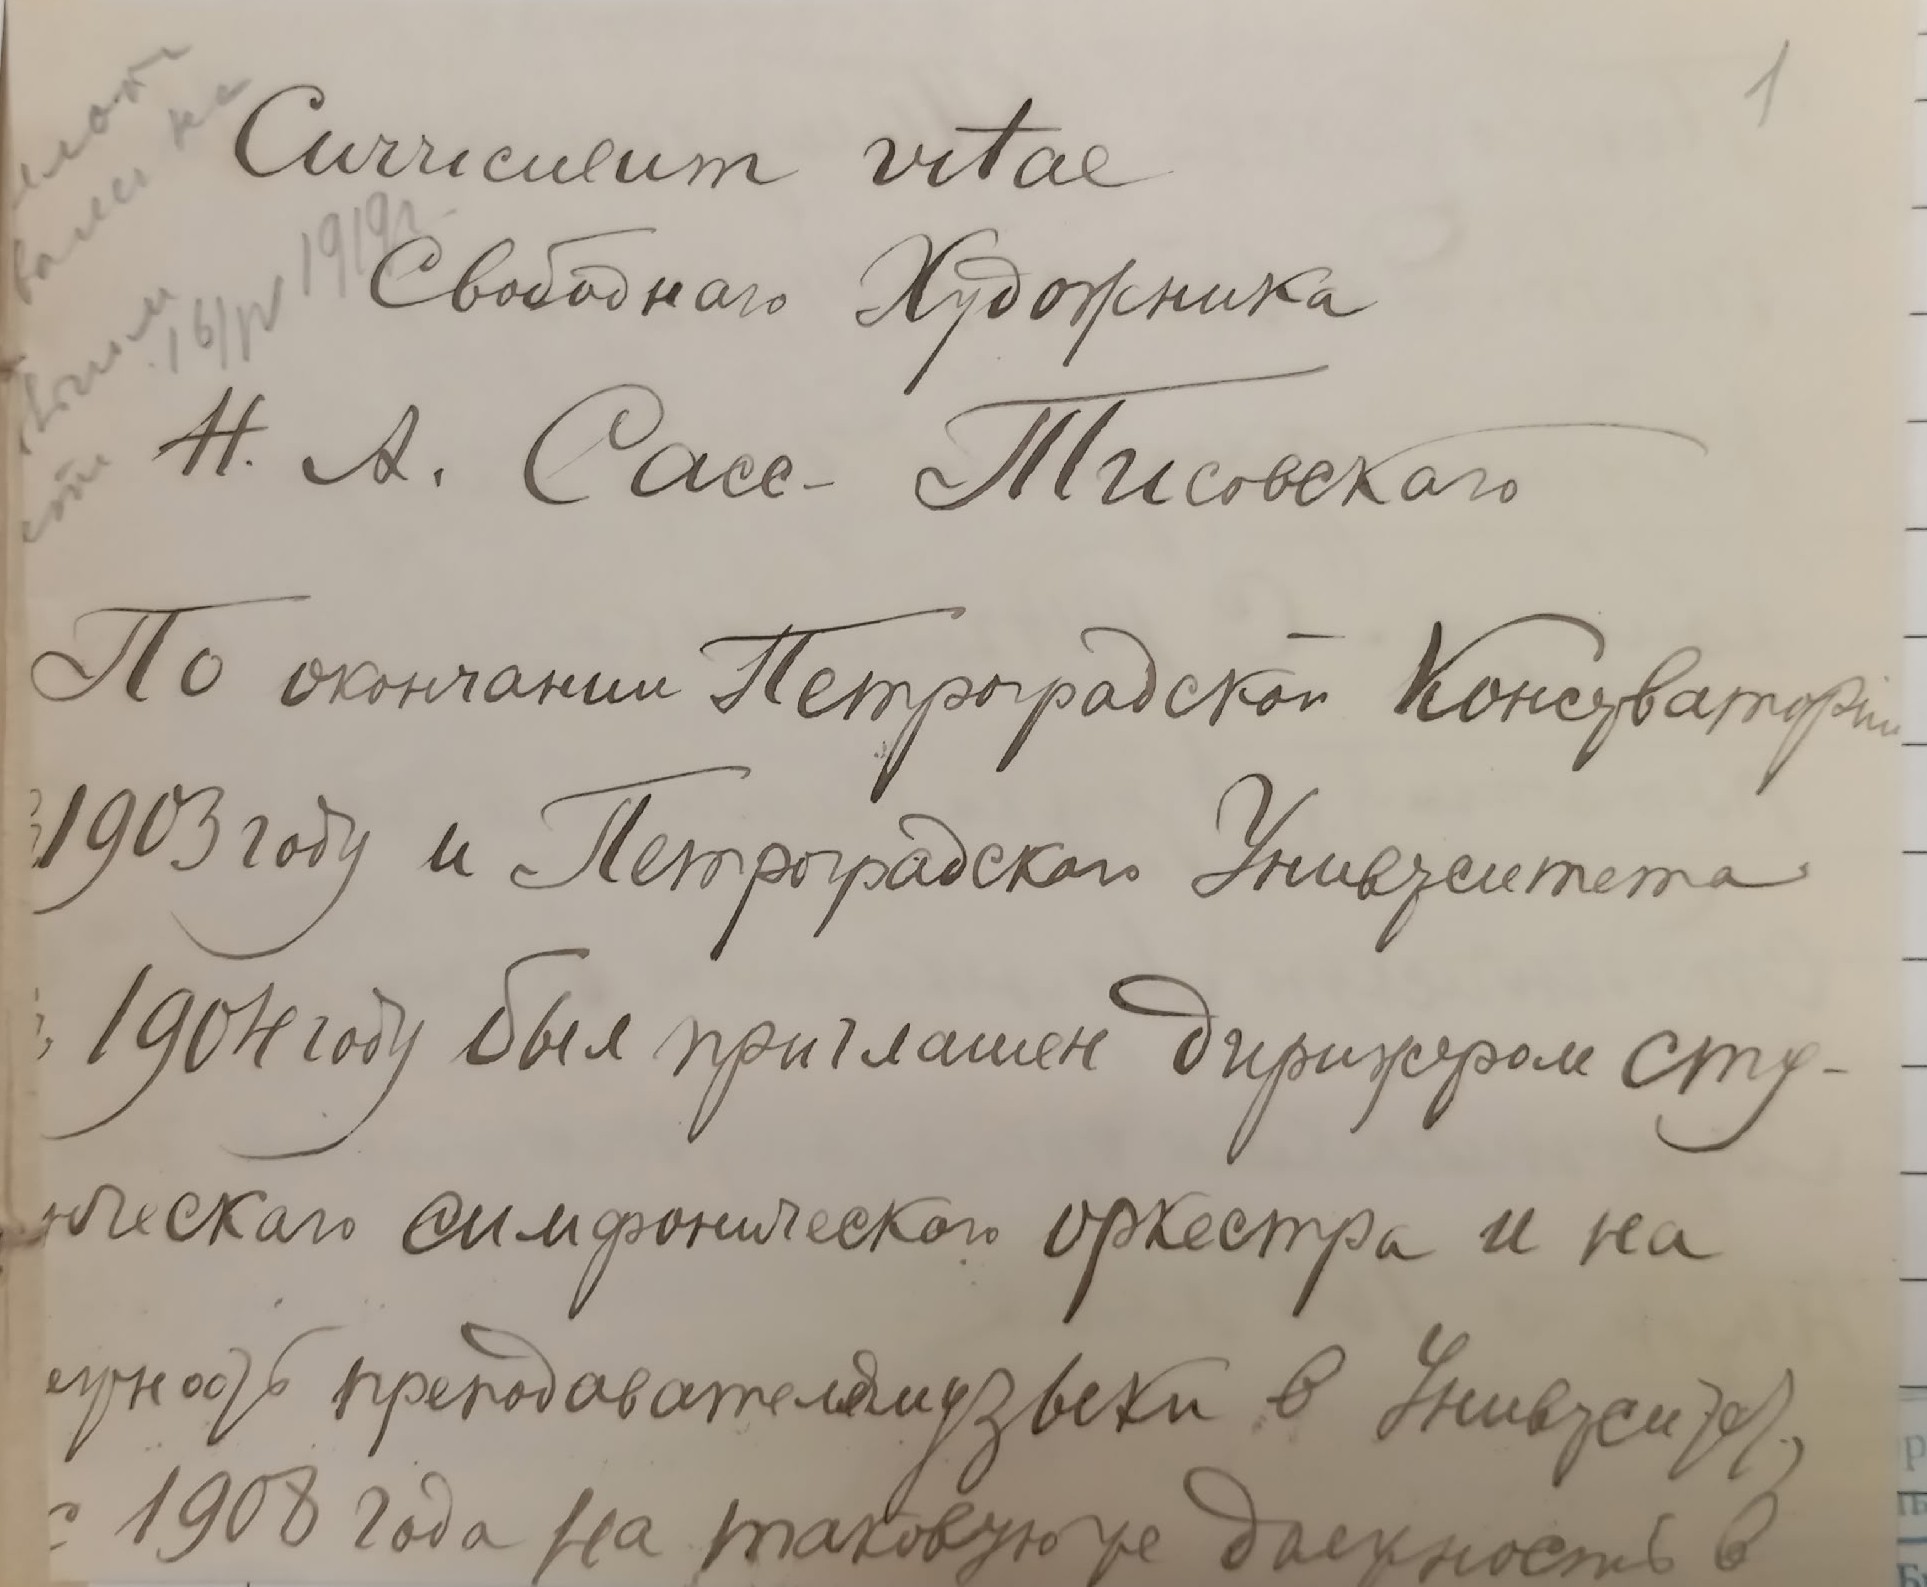 1
Curriculum vitae
16/IV 1919г.
Свободнаго Художника
Н. А. Сасс-Тисовскаго
По окончании Петроградской Консерваторіи
1903 году и Петроградскаго Университета
1904 году был приглашен дирижером сту-
ническаго симфоническаго оркестра и на
лжность преподавателя музыки в Университет,
с 1908 года на таковую же должность в